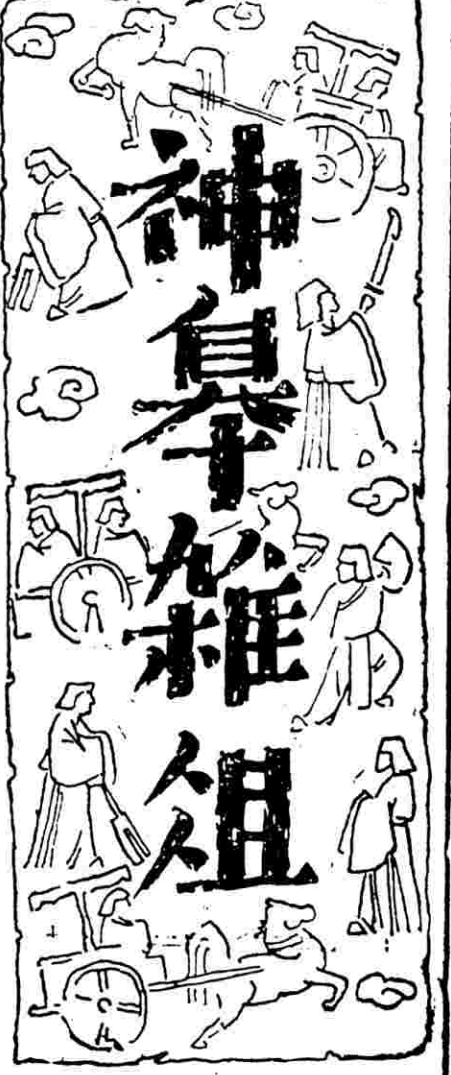 神皋雜俎